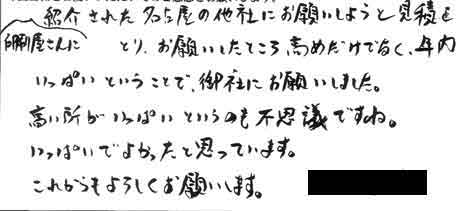 紹介された名古屋の他社にお願いしようと見積を
印刷屋さんに
とり、お願いしたところ高めだけでなく、年内
いっぱいということで、御社にお願いしました。
高い所がいっぱいというのも不思議ですね。
いっぱいでよかったと思っています。
これからもよろしくお願いします。